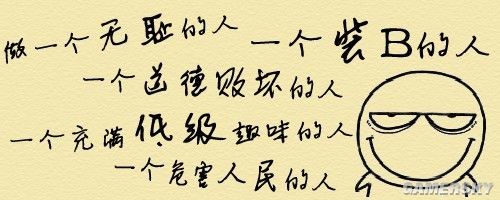 做一个无耻的人 一个装B的人
一个道德败坏的人
一个充满低级趣味的人
一个危害人民的人
GAMERSKY